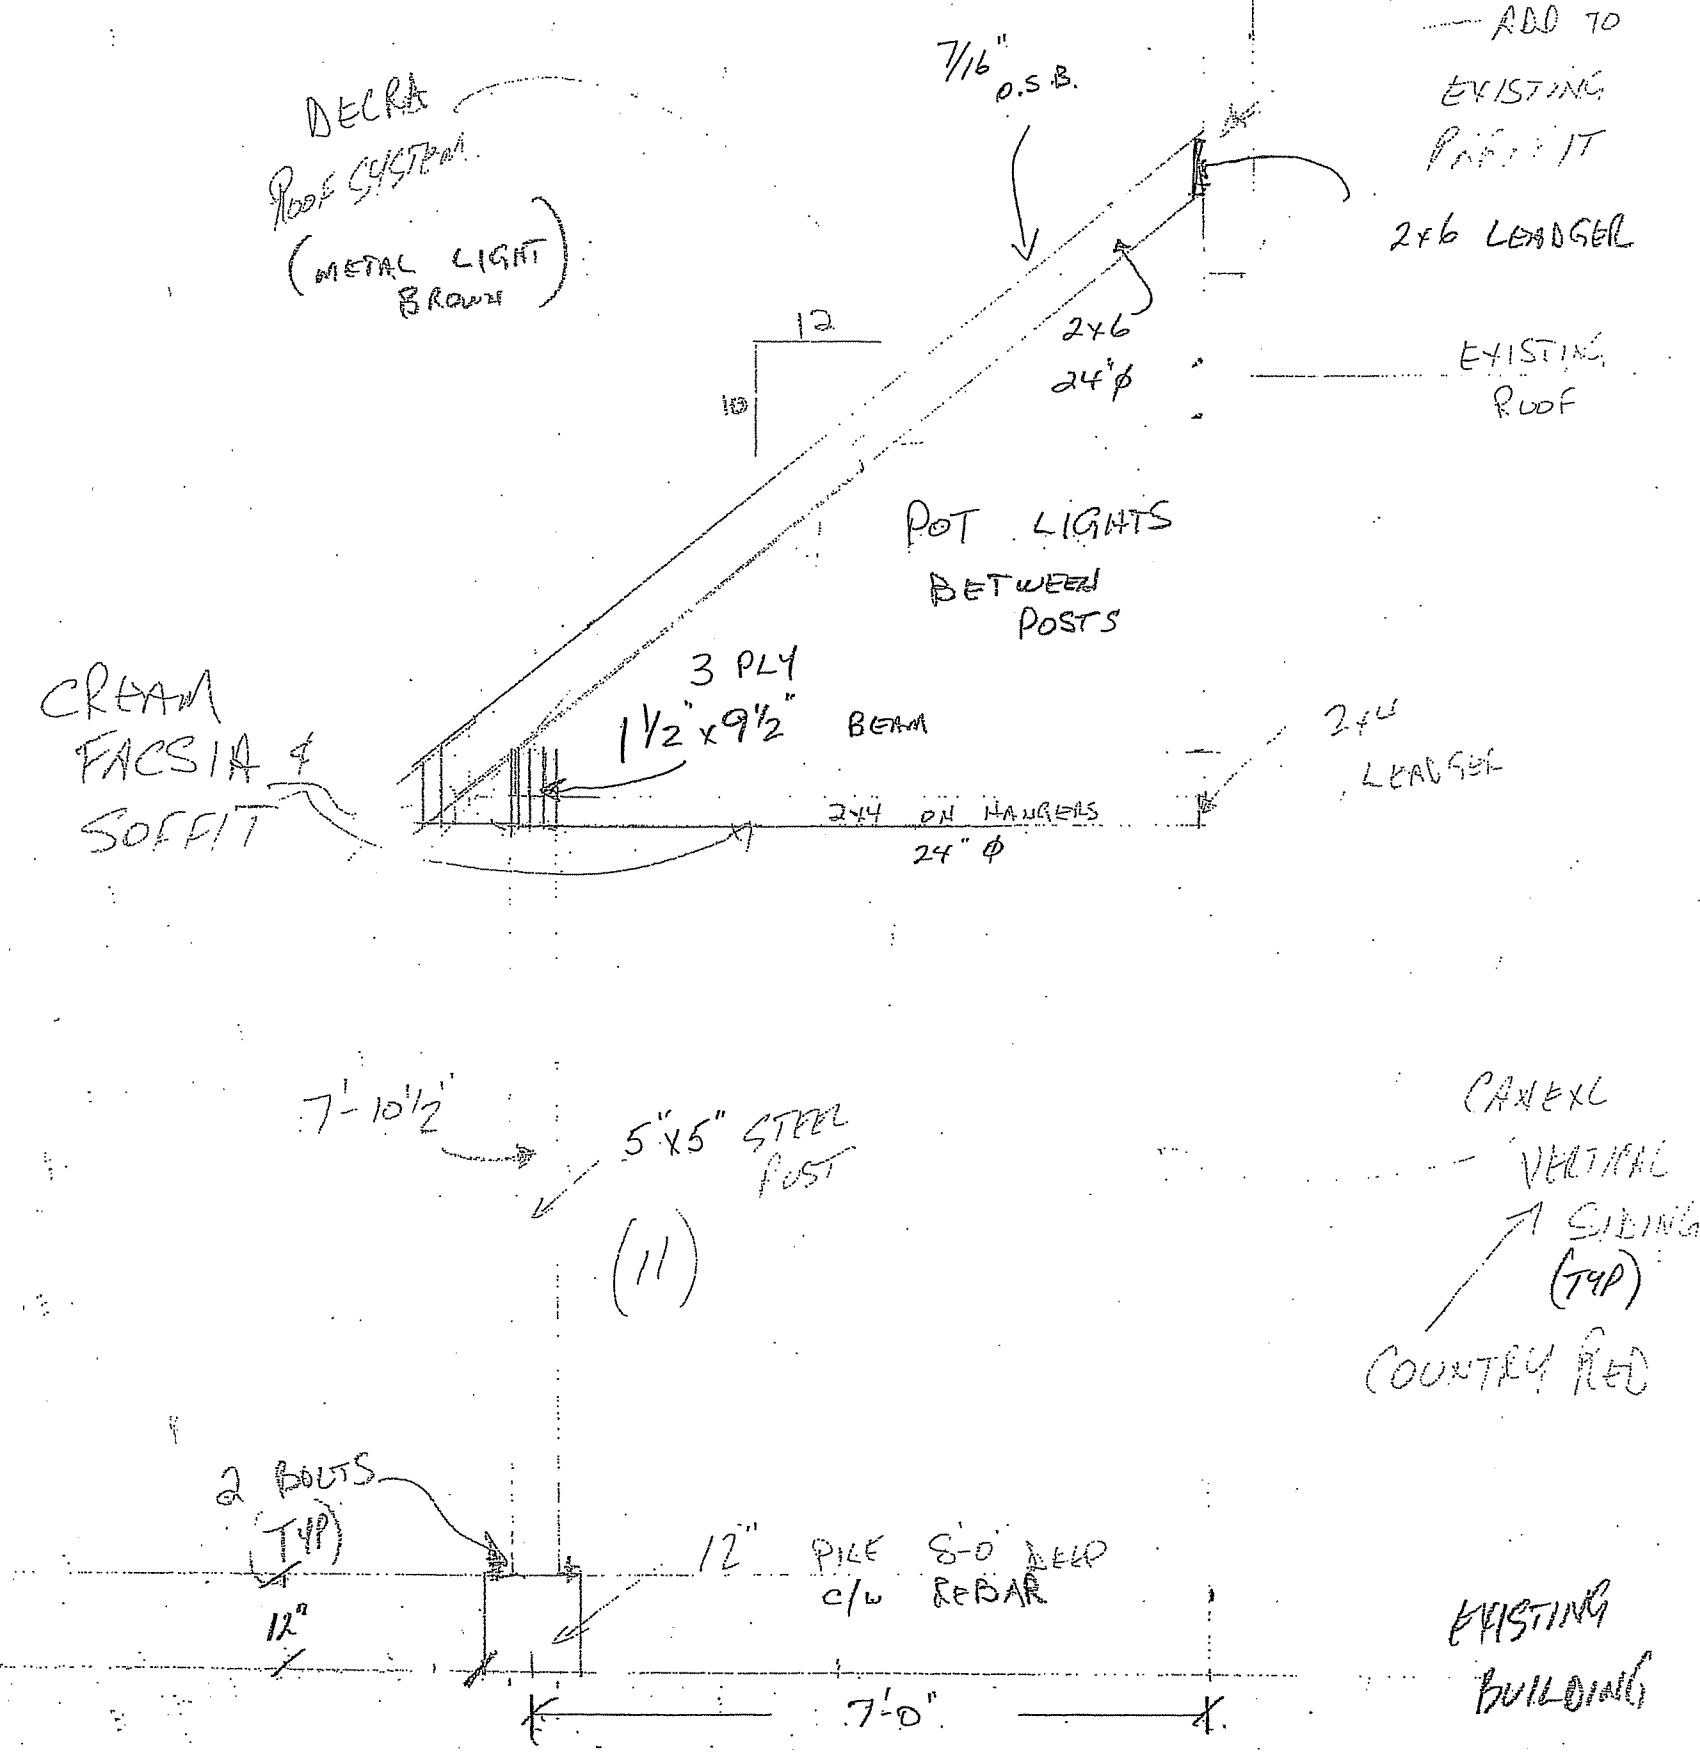 ADD TO
EXISTING
7/16"
O.S.B.
DECRA
ROOF SYSTEM
(METAL LIGHT
BROWN)
2x6 LEADGER
12
10
2x6
24" φ
EXISTING
ROOF
POT LIGHTS
BETWEEN
POSTS
3 PLY
1 1/2" x 9 1/2" BEAM
CREAM
FACSIA &
SOFFIT
2x4
LEADGER
2x4 ON HANGERS
24" φ
7'-10 1/2"
5"x5" STEEL
POST
(11)
CANEXL
VERTICAL
SIDING
(TYP)
COUNTRY RED
2 BOLTS
(TYP)
12" PILE 8'-0" DEEP
C/W REBAR
12"
EXISTING
BUILDING
7'-0"